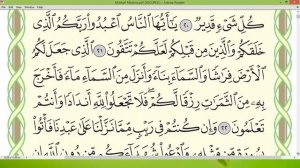 (SECURED) - Adobe Reader
كُلِّ شَىْءٍ قَدِيرٌ ٢٠ يَٰٓأَيُّهَا ٱلنَّاسُ ٱعْبُدُوا۟ رَبَّكُمُ ٱلَّذِى
خَلَقَكُمْ وَٱلَّذِينَ مِن قَبْلِكُمْ لَعَلَّكُمْ تَتَّقُونَ ٢١ ٱلَّذِى جَعَلَ لَكُمُ
ٱلْأَرْضَ فِرَٰشًا وَٱلسَّمَآءَ بِنَآءً وَأَنزَلَ مِنَ ٱلسَّمَآءِ مَآءً فَأَخْرَجَ
بِهِۦ مِنَ ٱلثَّمَرَٰتِ رِزْقًا لَّكُمْ ۖ فَلَا تَجْعَلُوا۟ لِلَّهِ أَندَادًا وَأَنتُمْ
تَعْلَمُونَ ٢٢ وَإِن كُنتُمْ فِى رَيْبٍ مِّمَّا نَزَّلْنَا عَلَىٰ عَبْدِنَا فَأْتُوا۟